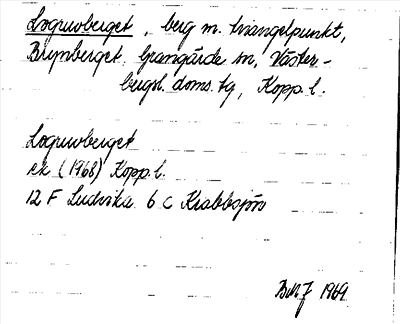 Loguvberget, berg m. triangelpunkt,
Brynberget, Grangärde sn, Väster-
bergsl. doms. tg, Kopp. l.
Loguvberget
ek (1968) Kopp. l.
12 F Ludvika 6 c Krabbsjön
1969